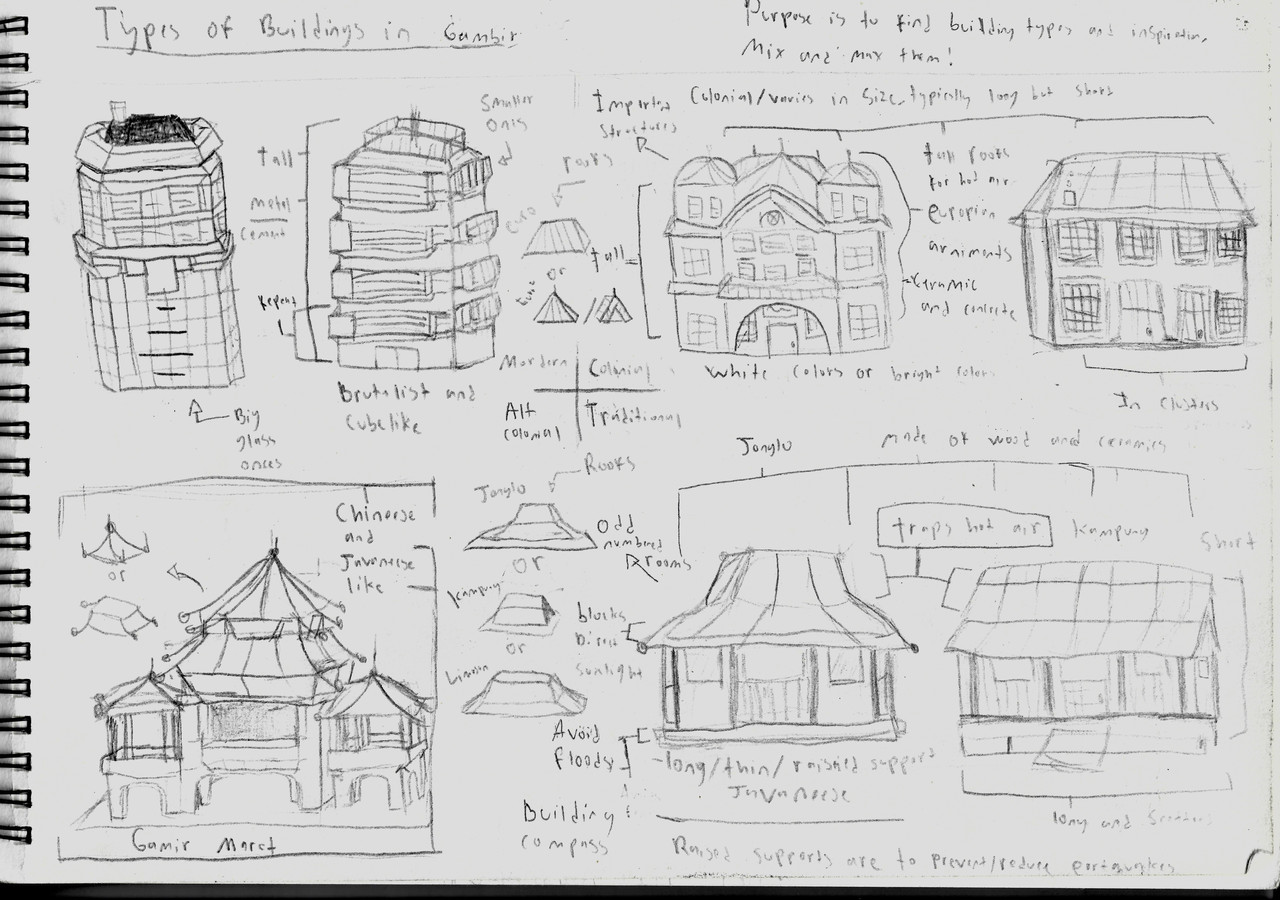 Types of Buildings in Gambir
Purpose is to find building types and inspiration,
Mix and max them!
Smaller
Ones
tall
metal
Cement
Repeat
Brutalist and
Cubelike
Big
glass
ones
Imported
Structures
Colonial/varies in size, typically long but short
roofs
euro
or
euro
tall
tall roofs
for hot air
europian
orniments
ceramic
and concrete
White colors or bright colors
In clusters
Mordern
Colonial
Alt
Colonial
Traditional
Chineese
and
Javaneese
like
or
Gamir Maret
Roofs
Jonglo
Odd
numbered
rooms
or
Kampung
or
Limasan
blocks
Direct
Sunlight
Avoid
floods
Building
compass
Jonglo
made of wood and ceramics
traps hot air
Kampung
Short
-long/thin/raisied support
Javaneese
long and
Raised supports are to prevent/reduce eartquakes